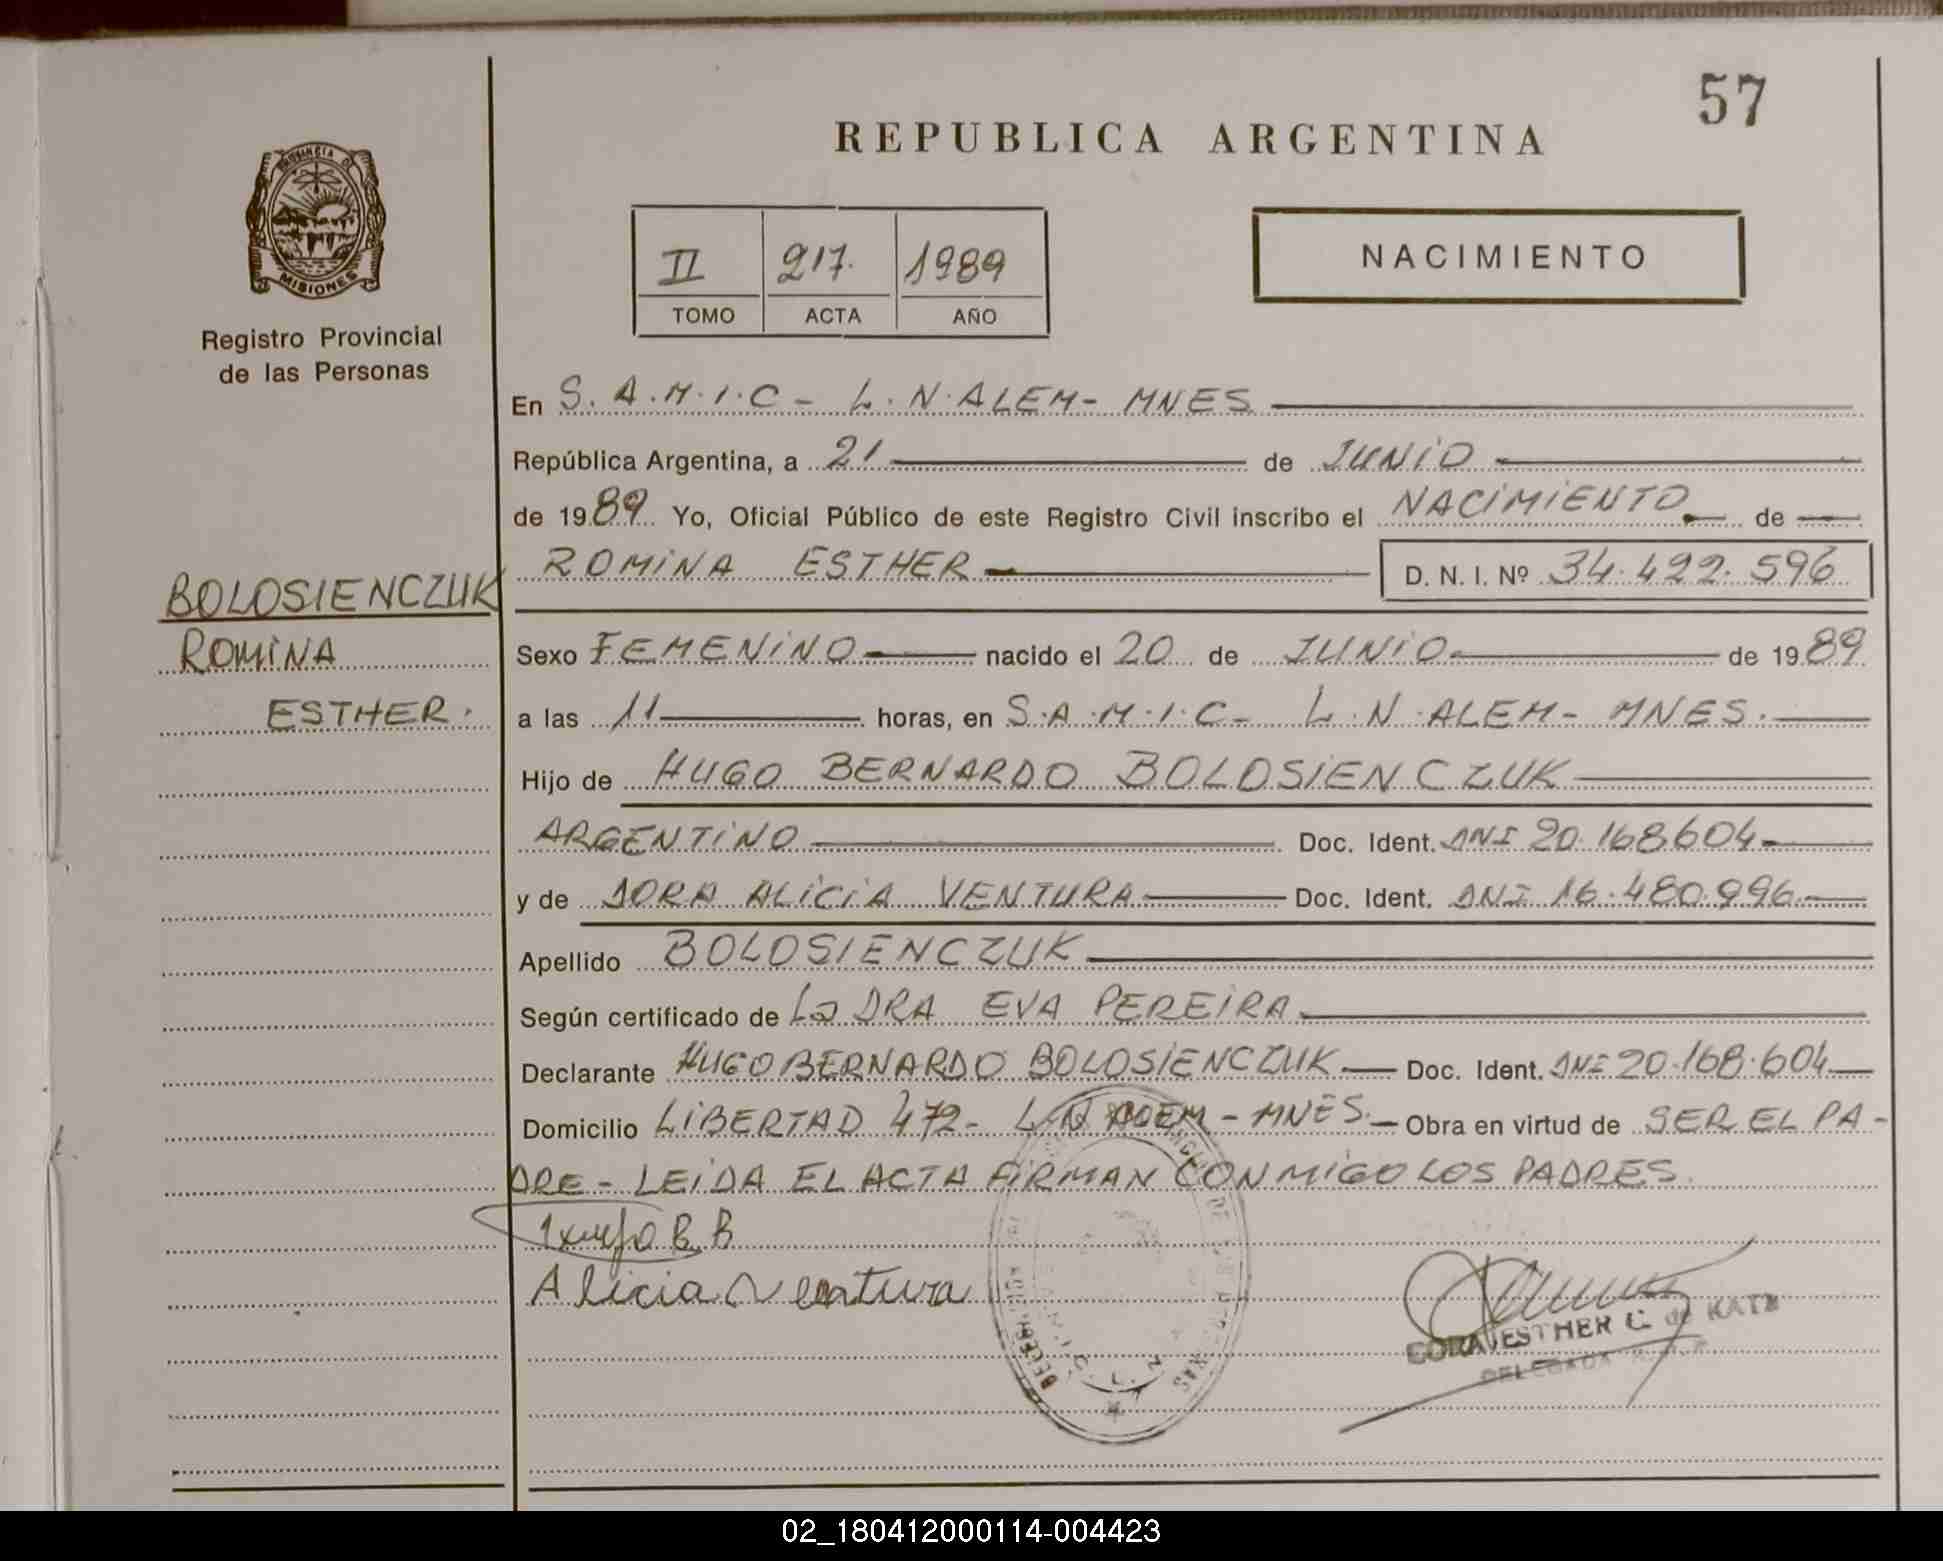 57
REPUBLICA ARGENTINA
PROVINCIA DE
MISIONES
Registro Provincial
de las Personas
II 217. 1989
TOMO ACTA AÑO
NACIMIENTO
En S.A.M.I.C - L.N.ALEM - MNES
República Argentina, a 21 de JUNIO
de 1989 Yo, Oficial Público de este Registro Civil inscribo el NACIMIENTO de
ROMINA ESTHER D. N. I. Nº 34.422.596
BOLOSIENCZUK
ROMINA
ESTHER.
Sexo FEMENINO nacido el 20 de JUNIO de 1989
a las 11 horas, en S.A.M.I.C - L.N.ALEM - MNES.
Hijo de HUGO BERNARDO BOLOSIENCZUK
ARGENTINO Doc. Ident. DNI 20.168604
y de DORA ALICIA VENTURA Doc. Ident. DNI 16.480.996
Apellido BOLOSIENCZUK
Según certificado de La DRA EVA PEREIRA
Declarante HUGO BERNARDO BOLOSIENCZUK Doc. Ident. DNI 20.168.604
Domicilio LIBERTAD 472 - L N ALEM - MNES. Obra en virtud de SER EL PA-
DRE - LEIDA EL ACTA FIRMAN CONMIGO LOS PADRES.
B. B
Alicia Ventura
ESTHER C. de KATZ
DELEGADA
02_180412000114-004423